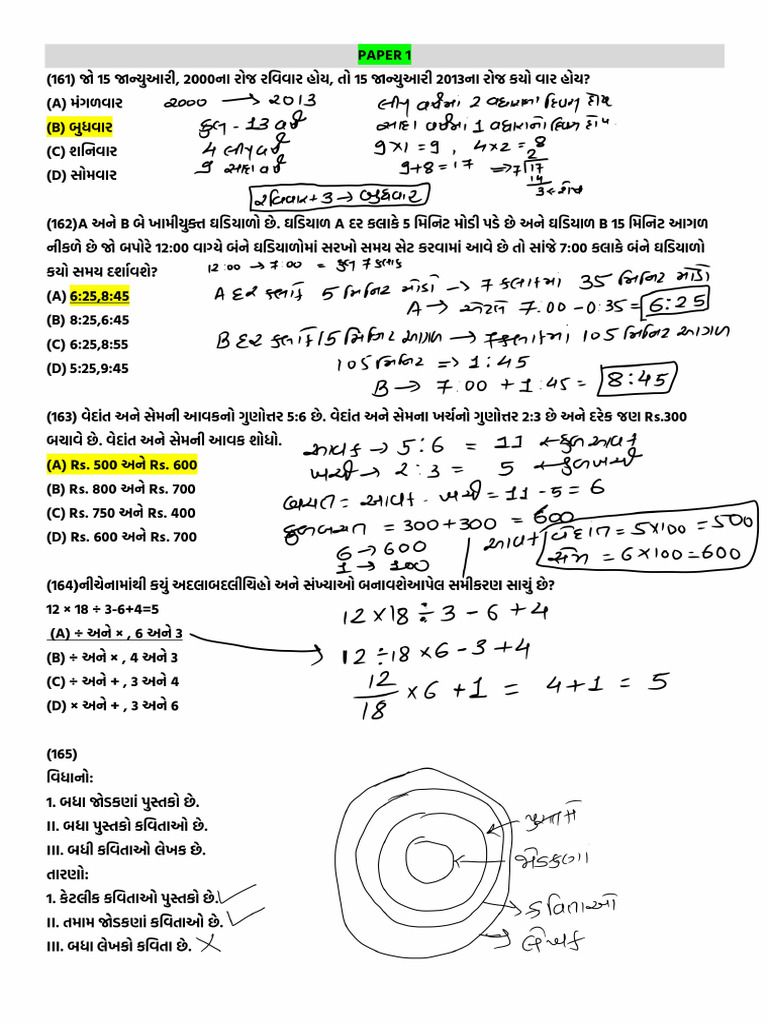 PAPER 1
(161) જો 15 જાન્યુઆરી, 2000ના રોજ રવિવાર હોય, તો 15 જાન્યુઆરી 2013ના રોજ કયો વાર હોય?
(A) મંગળવાર
2000 → 2013
લીપ વર્ષમાં 2 વધારાના દિવસ હોય
(B) બુધવાર
કુલ - 13 વર્ષ
સાદા વર્ષમાં 1 વધારાનો દિવસ હોય.
(C) શનિવાર
4 લીપ વર્ષ
9×1 = 9, 4×2 = 8
(D) સોમવાર
9 સાદા વર્ષ
9+8 = 17 ⇒ 7 17 2
14
3 ← શેષ
રવિવાર + 3 → બુધવાર
(162)A અને B બે ખામીયુક્ત ઘડિયાળો છે. ઘડિયાળ A દર કલાકે 5 મિનિટ મોડી પડે છે અને ઘડિયાળ B 15 મિનિટ આગળ
નીકળે છે જો બપોરે 12:00 વાગ્યે બંને ઘડિયાળોમાં સરખો સમય સેટ કરવામાં આવે છે તો સાંજે 7:00 કલાકે બંને ઘડિયાળો
કયો સમય દર્શાવશે?
12:00 → 7:00 = કુલ 7 કલાક
(A) 6:25,8:45
A દર કલાકે 5 મિનિટ મોડો → 7 કલાકમાં 35 મિનિટ મોડો
A → એટલે 7:00 - 0:35 = 6:25
(B) 8:25,6:45
B દર કલાકે 15 મિનિટ આગળ → 7 કલાકમાં 105 મિનિટ આગળ
(C) 6:25,8:55
105 મિનિટ ⇒ 1:45
(D) 5:25,9:45
B → 7:00 + 1:45 = 8:45
(163) વેદાંત અને સેમની આવકનો ગુણોત્તર 5:6 છે. વેદાંત અને સેમના ખર્ચનો ગુણોત્તર 2:3 છે અને દરેક જણ Rs.300
બચાવે છે. વેદાંત અને સેમની આવક શોધો.
આવક → 5:6 = 11 ← કુલ આવક
(A) Rs. 500 અને Rs. 600
ખર્ચો → 2:3 = 5 ← કુલ ખર્ચો
(B) Rs. 800 અને Rs. 700
બચત = આવક - ખર્ચો = 11 - 5 = 6
(C) Rs. 750 અને Rs. 400
કુલ બચત = 300 + 300 = 600
(D) Rs. 600 અને Rs. 700
6 → 600
1 → 100
આવક
વેદાંત = 5×100 = 500
સેમ = 6×100 = 600
(164)નીચેનામાંથી કયું અદલાબદલીચિહ્નો અને સંખ્યાઓ બનાવશેઆપેલ સમીકરણ સાચું છે?
12 × 18 ÷ 3-6+4=5
12 × 18 ÷ 3 - 6 + 4
(A) ÷ અને × , 6 અને 3
12 ÷ 18 × 6 - 3 + 4
(B) ÷ અને × , 4 અને 3
(C) ÷ અને + , 3 અને 4
12/18 × 6 + 1 = 4 + 1 = 5
(D) × અને + , 3 અને 6
(165)
વિધાનો:
1. બધા જોડકણાં પુસ્તકો છે.
II. બધા પુસ્તકો કવિતાઓ છે.
III. બધી કવિતાઓ લેખક છે.
તારણો:
1. કેટલીક કવિતાઓ પુસ્તકો છે. ✓
II. તમામ જોડકણાં કવિતાઓ છે. ✓
III. બધા લેખકો કવિતા છે. ✗
જોડકણાં
કવિતાઓ
લેખક